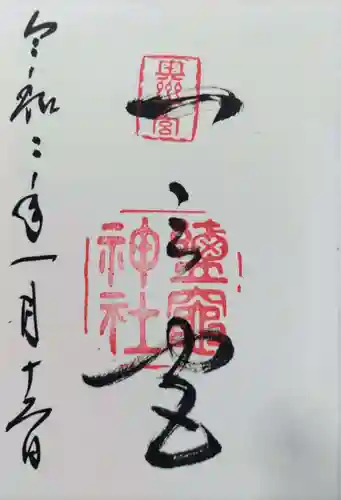 奥州
宮
一之宮
鹽竈
神社
令和二年一月十日